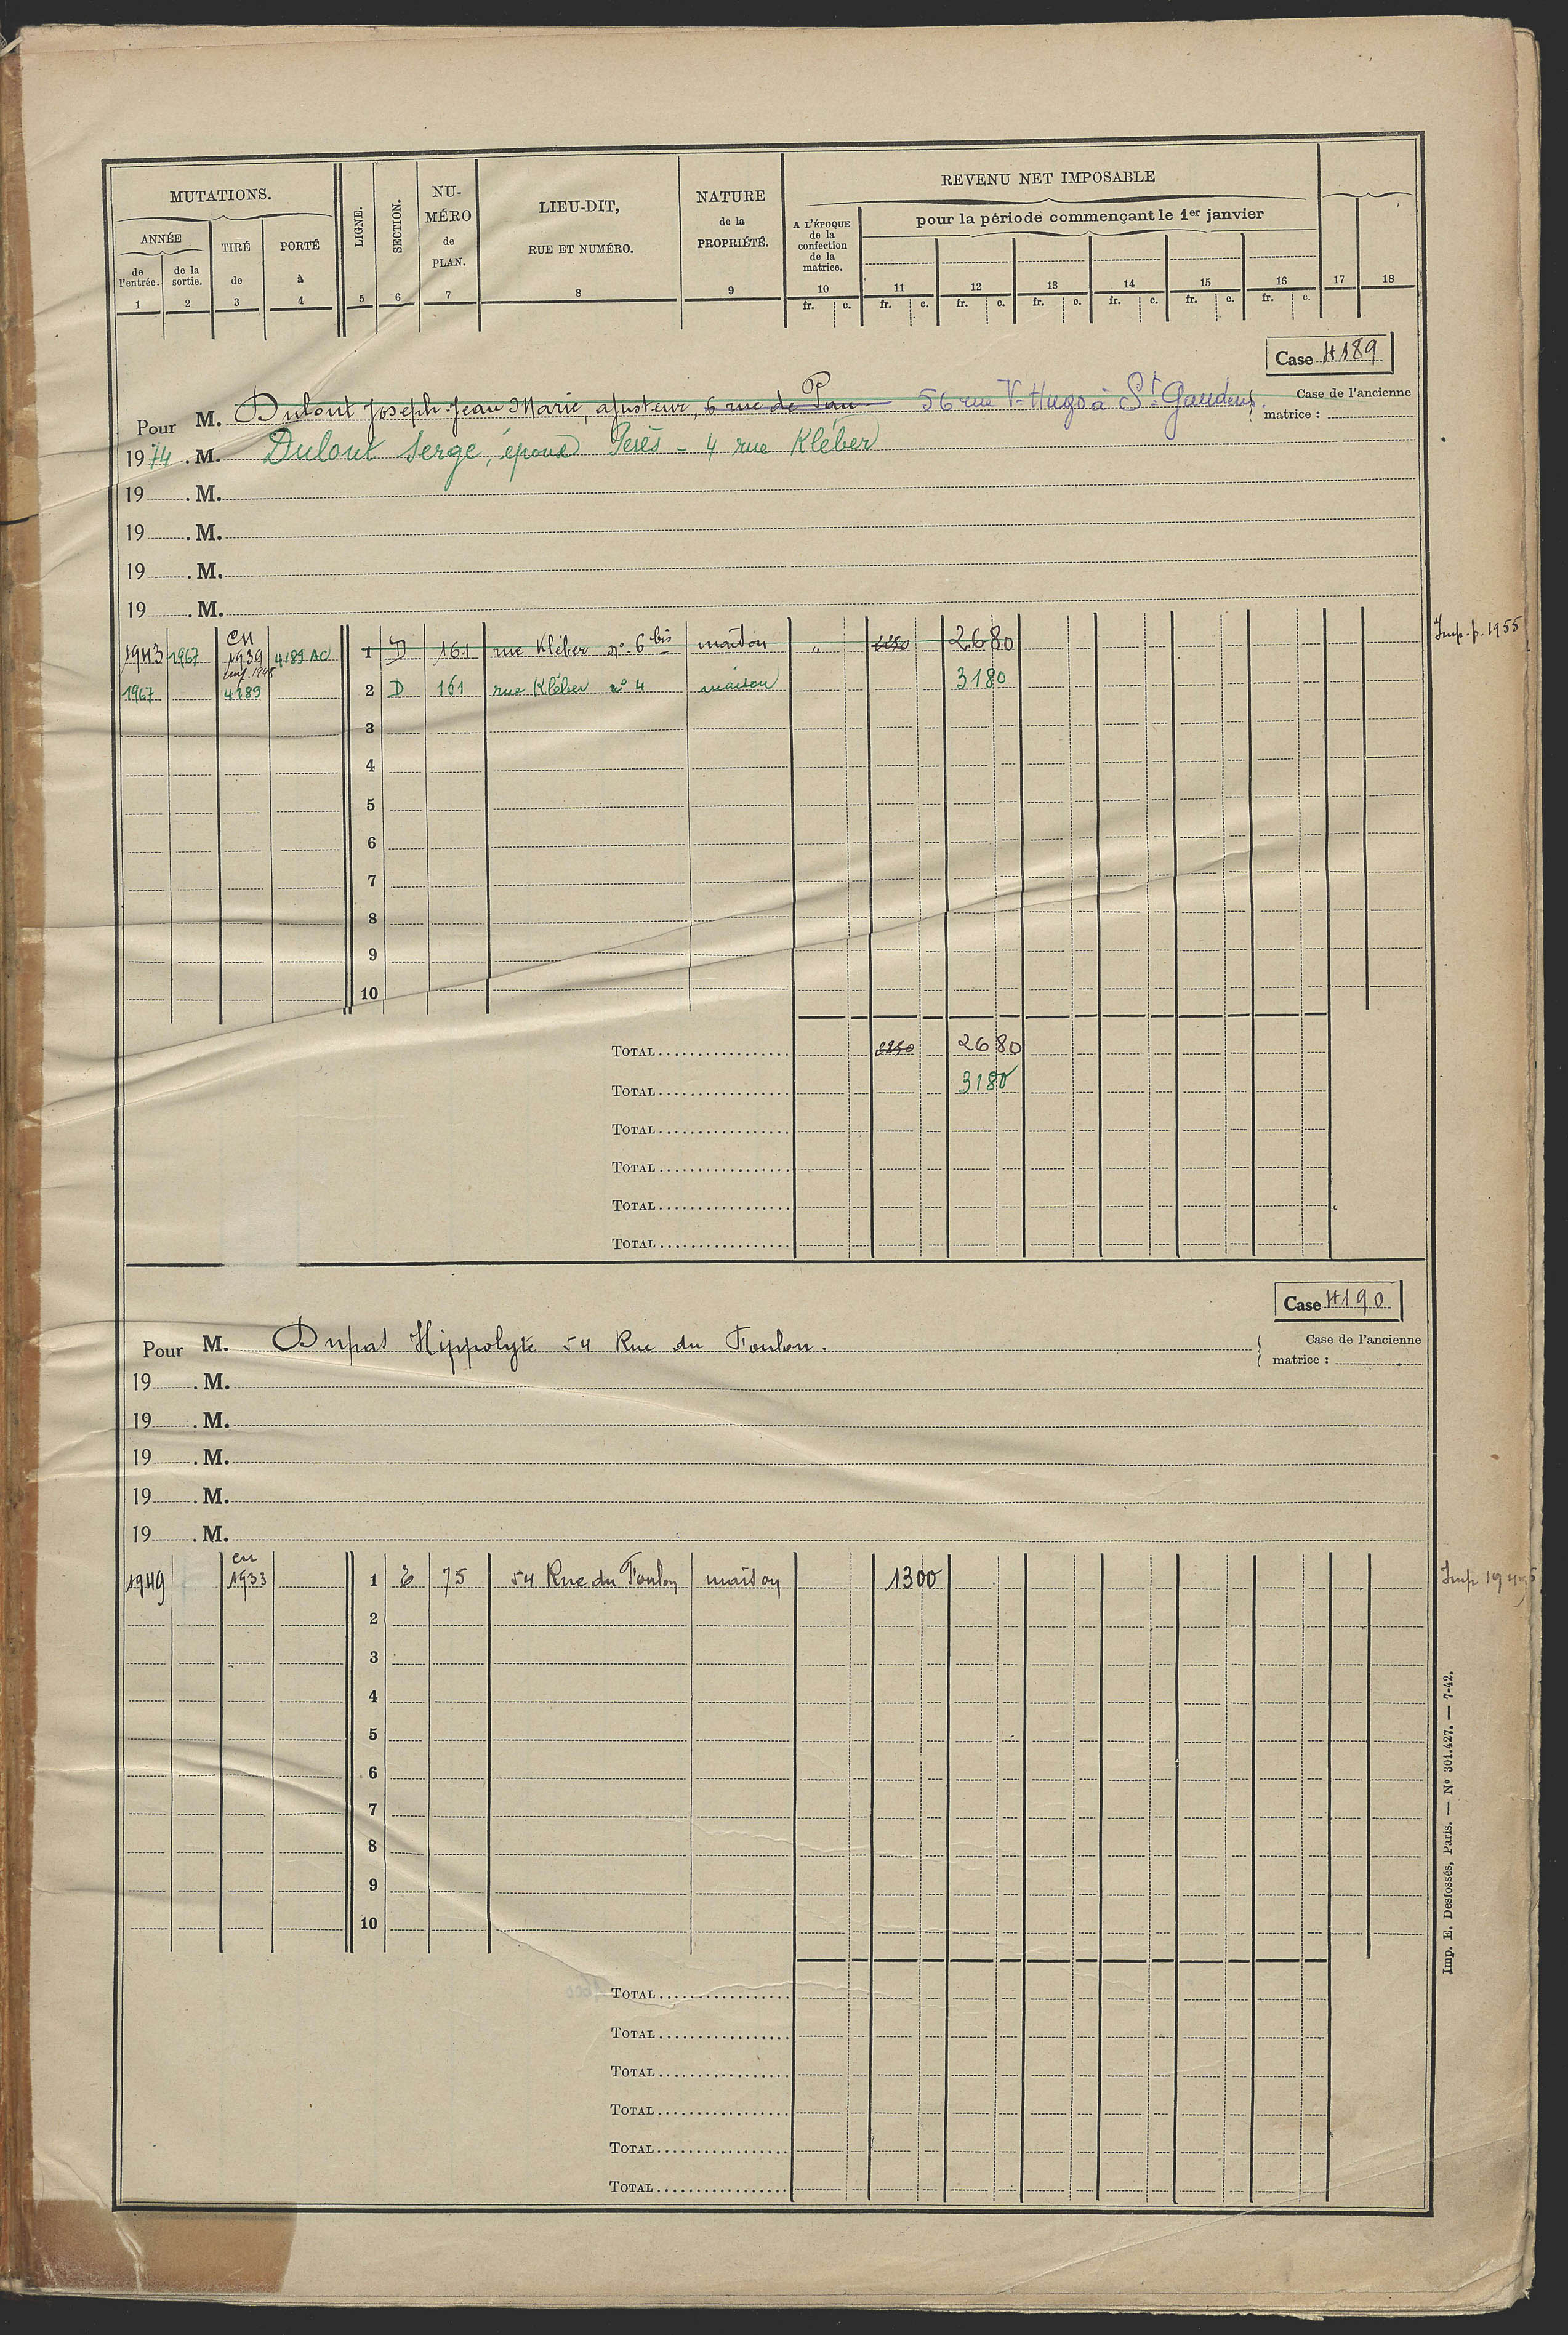 MUTATIONS.
ANNÉE
de l'entrée.
de la sortie.
TIRÉ de
PORTÉ à
LIGNE.
SECTION.
NUMÉRO de PLAN.
LIEU-DIT, RUE ET NUMÉRO.
NATURE de la PROPRIÉTÉ.
REVENU NET IMPOSABLE
A L'ÉPOQUE de la confection de la matrice.
pour la période commençant le 1er janvier
1 2 3 4 5 6 7 8 9 10 11 12 13 14 15 16 17 18
fr. c. fr. c. fr. c. fr. c. fr. c. fr. c. fr. c.
Case 4189
Pour M. Dulout Joseph Jean Marie, ajusteur, 6 rue de Pau 56 rue V. Hugo à St Gaudens.
Case de l'ancienne matrice :
1974. M. Dulout Serge, époux Perès - 4 rue Kléber
19 . M.
19 . M.
19 . M.
19 . M.
1943 1967 en 1939 4189 AC 1 D 161 rue Kléber no. 6 bis maison " 2680 Imp. p. 1955
1967 4189 2 D 161 rue Kléber no 4 maison 3180
3
4
5
6
7
8
9
10
TOTAL 2680
TOTAL 3180
TOTAL
TOTAL
TOTAL
TOTAL
Case 4190
Pour M. Dupat Hippolyte 54 Rue du Foulon.
Case de l'ancienne matrice :
19 . M.
19 . M.
19 . M.
19 . M.
19 . M.
1949 en 1933 1 E 75 54 Rue du Foulon maison 1300 Imp
2
3
4
5
6
7
8
9
10
TOTAL
TOTAL
TOTAL
TOTAL
TOTAL
TOTAL
Imp. E. Desfossés, Paris. — No 301.427. — 7-42.